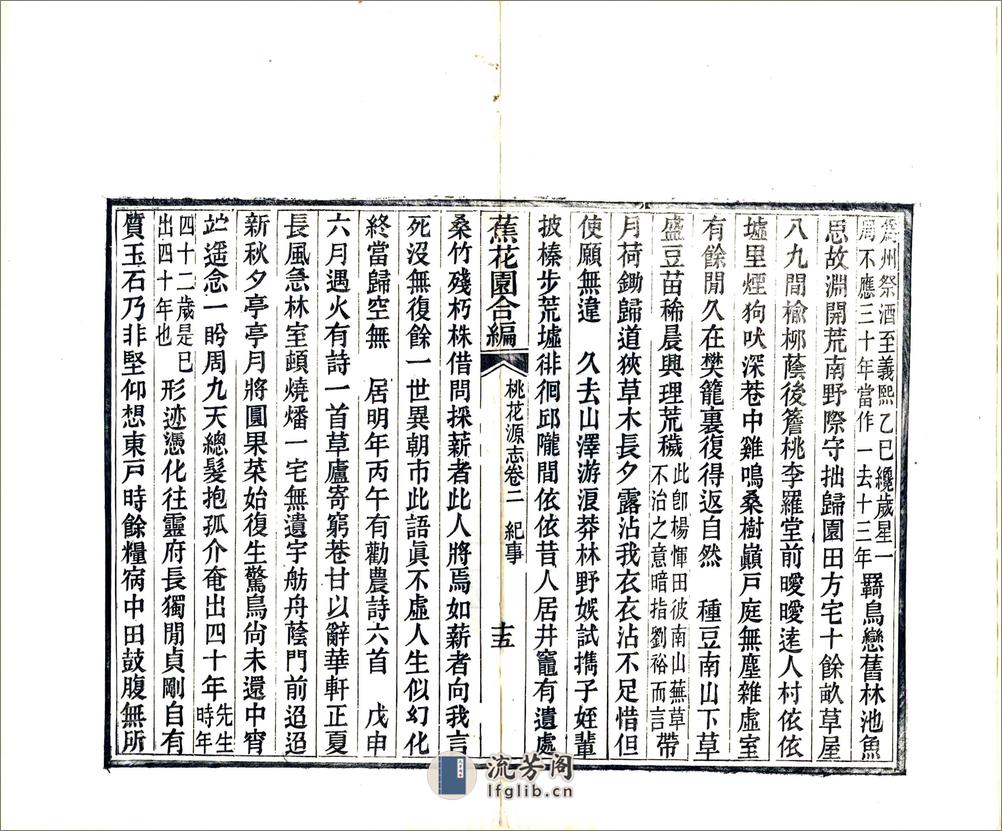 爲州祭酒至義熙乙巳纔歲星一
周不應三十年當作一去十三年羇鳥戀舊林池魚
思故淵開荒南野際守拙歸園田方宅十餘畝草屋
八九閒楡柳蔭後簷桃李羅堂前曖曖遠人村依依
墟里煙狗吠深巷中雞鳴桑樹巔戸庭無塵雜虛室
有餘閒久在樊籠裏復得返自然　種豆南山下草
盛豆苗稀晨興理荒穢此卽楊惲田彼南山蕪草
不治之意暗指劉裕而言帶
月荷鋤歸道狹草木長夕露沾我衣衣沾不足惜但
使願無違　久去山澤游浪莽林野娛試擕子姪輩
披榛步荒墟徘徊邱隴閒依依昔人居井竈有遺處
蕉花園合編　桃花源志卷二　紀事　十五
桑竹殘朽株借問採薪者此人將焉如薪者向我言
死沒無復餘一世異朝市此語眞不虛人生似幻化
終當歸空無　居明年丙午有勸農詩六首　戊申
六月遇火有詩一首草廬寄窮巷甘以辭華軒正夏
長風急林室頓燒燔一宅無遺宇舫舟蔭門前迢迢
新秋夕亭亭月將圓果菜始復生驚鳥尙未還中宵
竚遥念一盻周九天總髮抱孤介奄出四十年先生
時年
四十二歲是已
出四十年也形迹憑化往靈府長獨閒貞剛自有
質玉石乃非堅仰想東戸時餘糧宿中田鼓腹無所
流芳阁
lfglib.cn